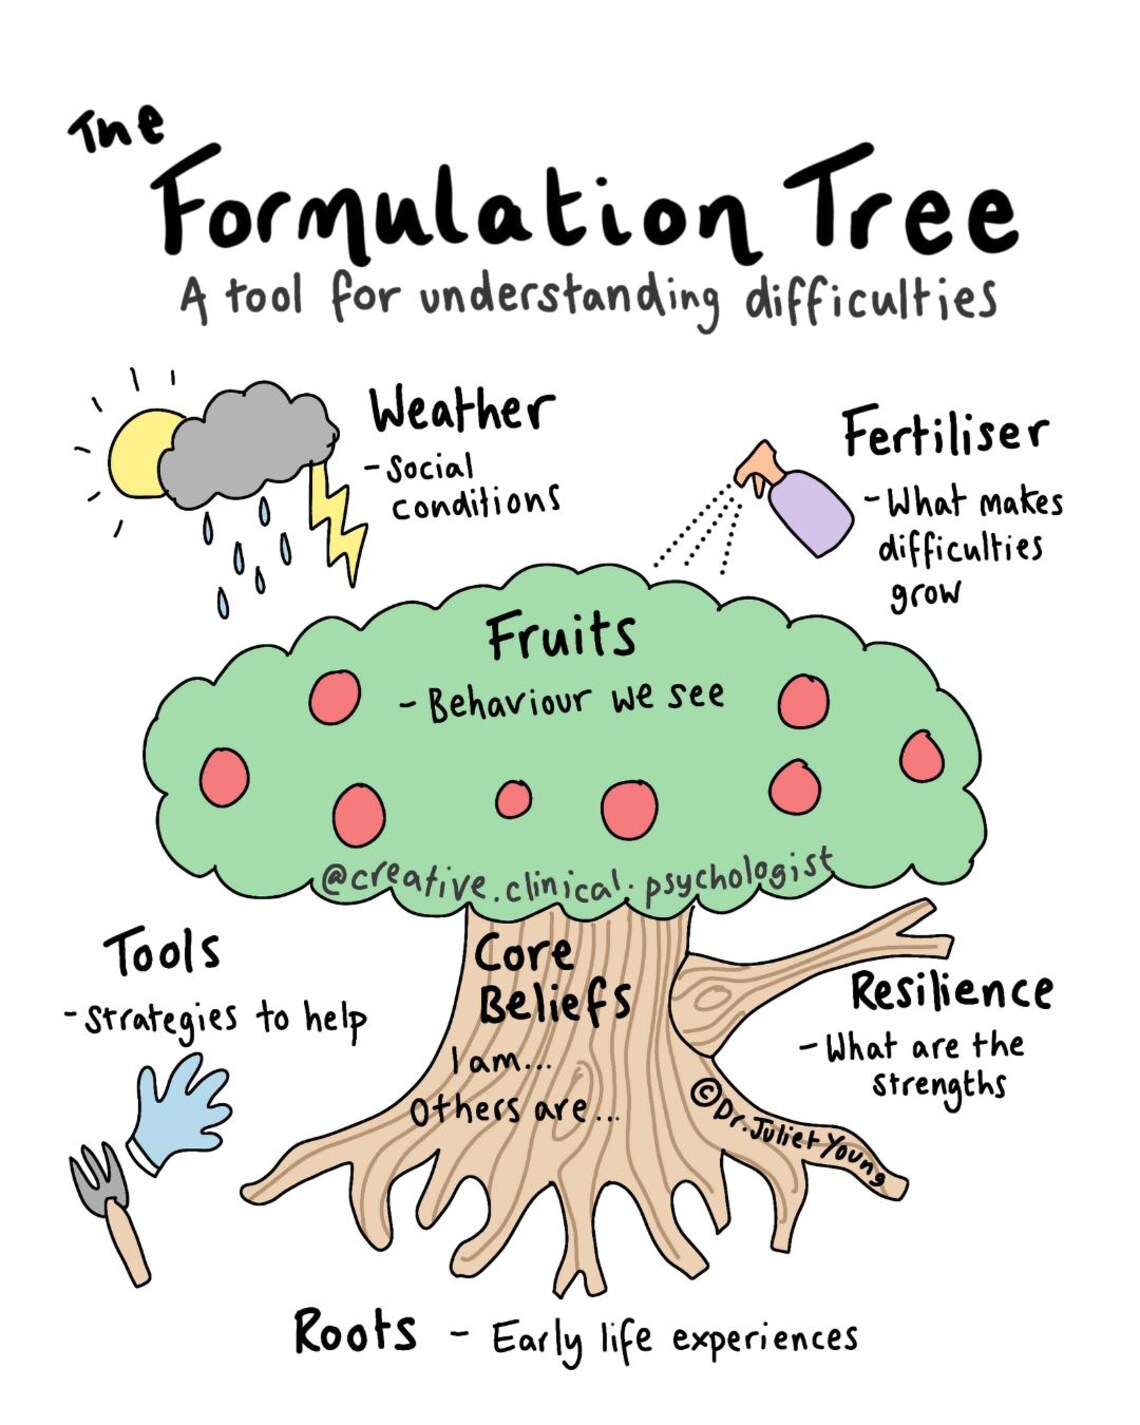 The
Formulation Tree
A tool for understanding difficulties
Weather
- Social
conditions
Fertiliser
- What makes
difficulties
grow
Fruits
- Behaviour we see
@creative.clinical.psychologist
Tools
- Strategies to help
Core
Beliefs
I am...
Others are...
Resilience
- What are the
strengths
©Dr.Juliet Young
Roots - Early life experiences